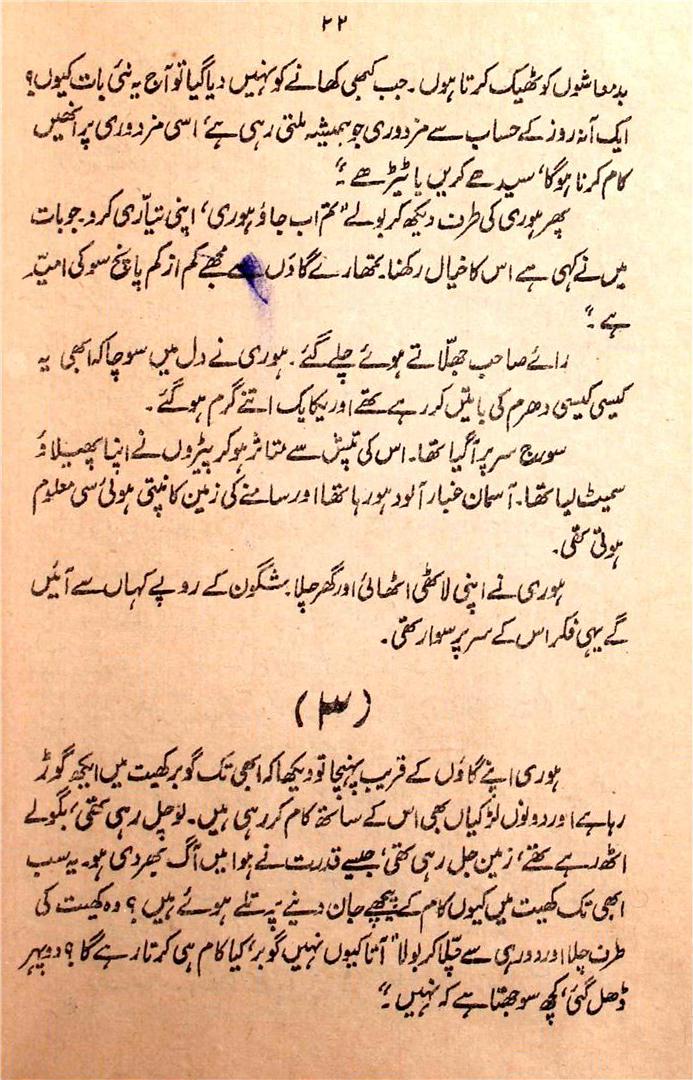 ۲۲
بدمعاشوں کو ٹھیک کرتا ہوں۔ جب کبھی کھانے کو نہیں دیا گیا تو آج یہ نئی بات کیوں؟
ایک آنہ روز کے حساب سے مزدوری جو ہمیشہ ملتی رہی ہے، اسی مزدوری پر انھیں
کام کرنا ہوگا، سیدھے کریں یا ٹیڑھے۔"
پھر ہوری کی طرف دیکھ کر بولے "تم اب جاؤ ہوری، اپنی تیاّری کرو۔ جو بات
میں نے کہی ہے اس کا خیال رکھنا۔ تمھارے گاؤں سے مجھے کم از کم پانچ سو کی امیّد
ہے۔"
رائے صاحب جھلّاتے ہوئے چلے گئے۔ ہوری نے دل میں سوچا کہ ابھی یہ
کیسی کیسی دھرم کی باتیں کر رہے تھے اور یکایک اتنے گرم ہوگئے۔
سورج سر پر آگیا تھا۔ اس کی تپش سے متاثر ہوکر پیڑوں نے اپنا پھیلاؤ
سمیٹ لیا تھا۔ آسمان غبار آلود ہو رہا تھا اور سامنے کی زمین کانپتی ہوئی سی معلوم
ہوتی تھی۔
ہوری نے اپنی لاٹھی اٹھائی اور گھر چلا۔ شگون کے روپے کہاں سے آئیں
گے یہی فکر اس کے سر پر سوار تھی۔
(۳)
ہوری اپنے گاؤں کے قریب پہنچا تو دیکھا کہ ابھی تک گوبر کھیت میں ایکھ گوڑ
رہا ہے اور دونوں لڑکیاں بھی اس کے ساتھ کام کر رہی ہیں۔ لوٗ چل رہی تھی، بگولے
اٹھ رہے تھے، زمین جل رہی تھی، جیسے قدرت نے ہوا میں آگ بھر دی ہو۔ یہ سب
ابھی تک کھیت میں کیوں کام کے پیچھے جان دینے پر تلے ہوئے ہیں؟ وہ کھیت کی
طرف چلا اور دور ہی سے چلّا کر بولا "آتا کیوں نہیں گوبر، کیا کام ہی کرتا رہے گا؟ دوپہر
ڈھل گئی، کچھ سوجھتا ہے کہ نہیں۔"